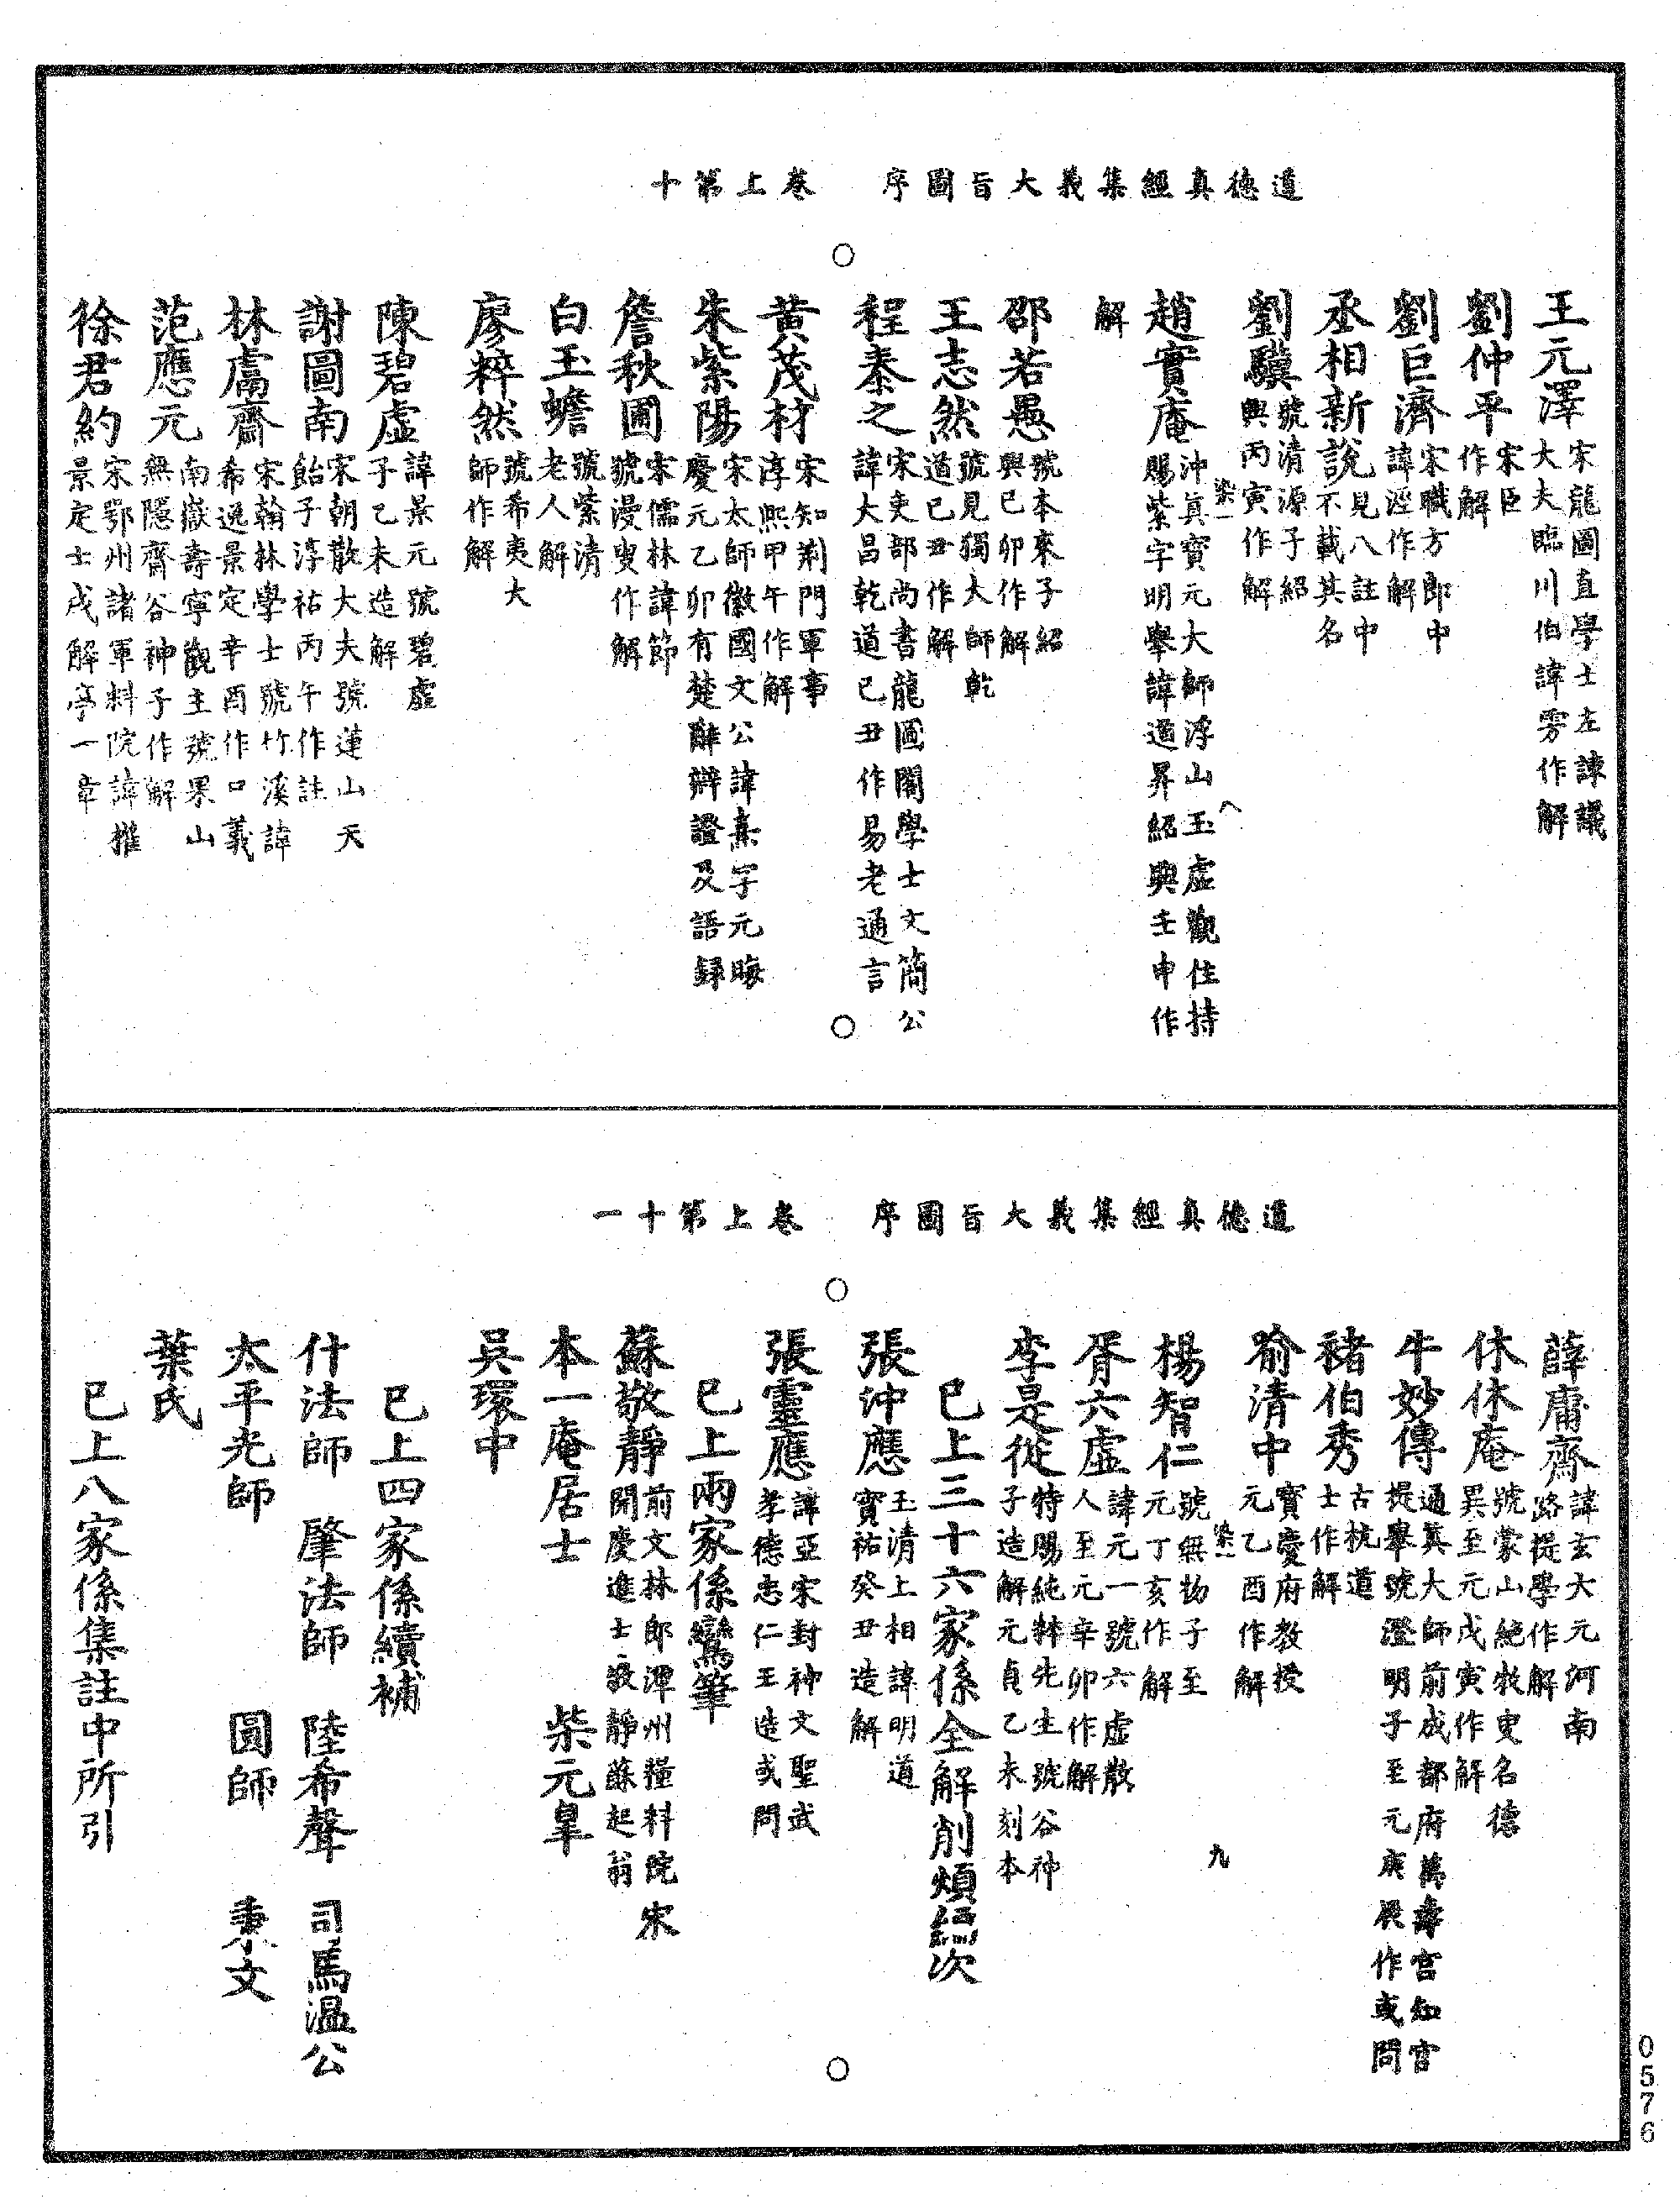 道德真經集義大旨圖序　卷上第十
王元澤宋龍圖直學士左諫議大夫臨川伯諱雱作解
劉仲平宋臣作解
劉巨濟宋職方郎中諱涇作解
丞相新說見八註中不載其名
劉驥號清源子紹興丙寅作解
染一
趙實庵沖真寶元大師浮山玉虛觀住持賜紫字明舉諱道昇紹興壬申作
解
邵若愚號本來子紹興己卯作解
王志然號見獨大師乾道己丑作解
程泰之宋吏部尚書龍圖閣學士文簡公諱大昌乾道己丑作易老通言
黃茂材宋知荊門軍事淳熙甲午作解
朱紫陽宋太師徽國文公諱熹字元晦慶元乙卯有楚辭辯證及語錄
詹秋圃宋儒林諱節號漫叟作解
白玉蟾號紫清老人解
廖粹然號希夷大師作解
陳碧虛諱景元號碧虛子乙未造解
謝圖南宋朝散大夫號蓮山天飴子淳祐丙午作註
林鬳齋宋翰林學士號竹溪諱希逸景定辛酉作口義
范應元南嶽壽寧觀主號果山無隱齋谷神子作解
徐君約宋鄂州諸軍料院諱擢景定士戌解序一章
道德真經集義大旨圖序　卷上第十一
薛庸齋諱玄大元河南路提學作解
休休庵號蒙山絕牧叟名德異至元戊寅作解
牛妙傳通真大師前成都府萬壽宮知宮提舉號澄明子至元庚辰作或問
褚伯秀古杭道士作解
喻清中寶慶府教授元乙酉作解
染一　九
楊智仁號無物子至元丁亥作解
胥六虛諱元一號六虛散人至元辛卯作解
李是從特賜純粹先生號谷神子造解元貞乙未刻本
已上三十六家係全解削煩編次
張沖應玉清上相諱明道寶祐癸丑造解
張靈應諱亞宋封神文聖武孝德忠仁王造或問
已上兩家係鸞筆
蘇敬靜前文林郎潭州糧料院宋開慶進士諱靜蘇起翁
本一庵居士　柴元皐
吳環中
已上四家係續補
什法師　肇法師　陸希聲　司馬溫公
太平光師　圓師　秉文
葉氏
已上八家係集註中所引
0576